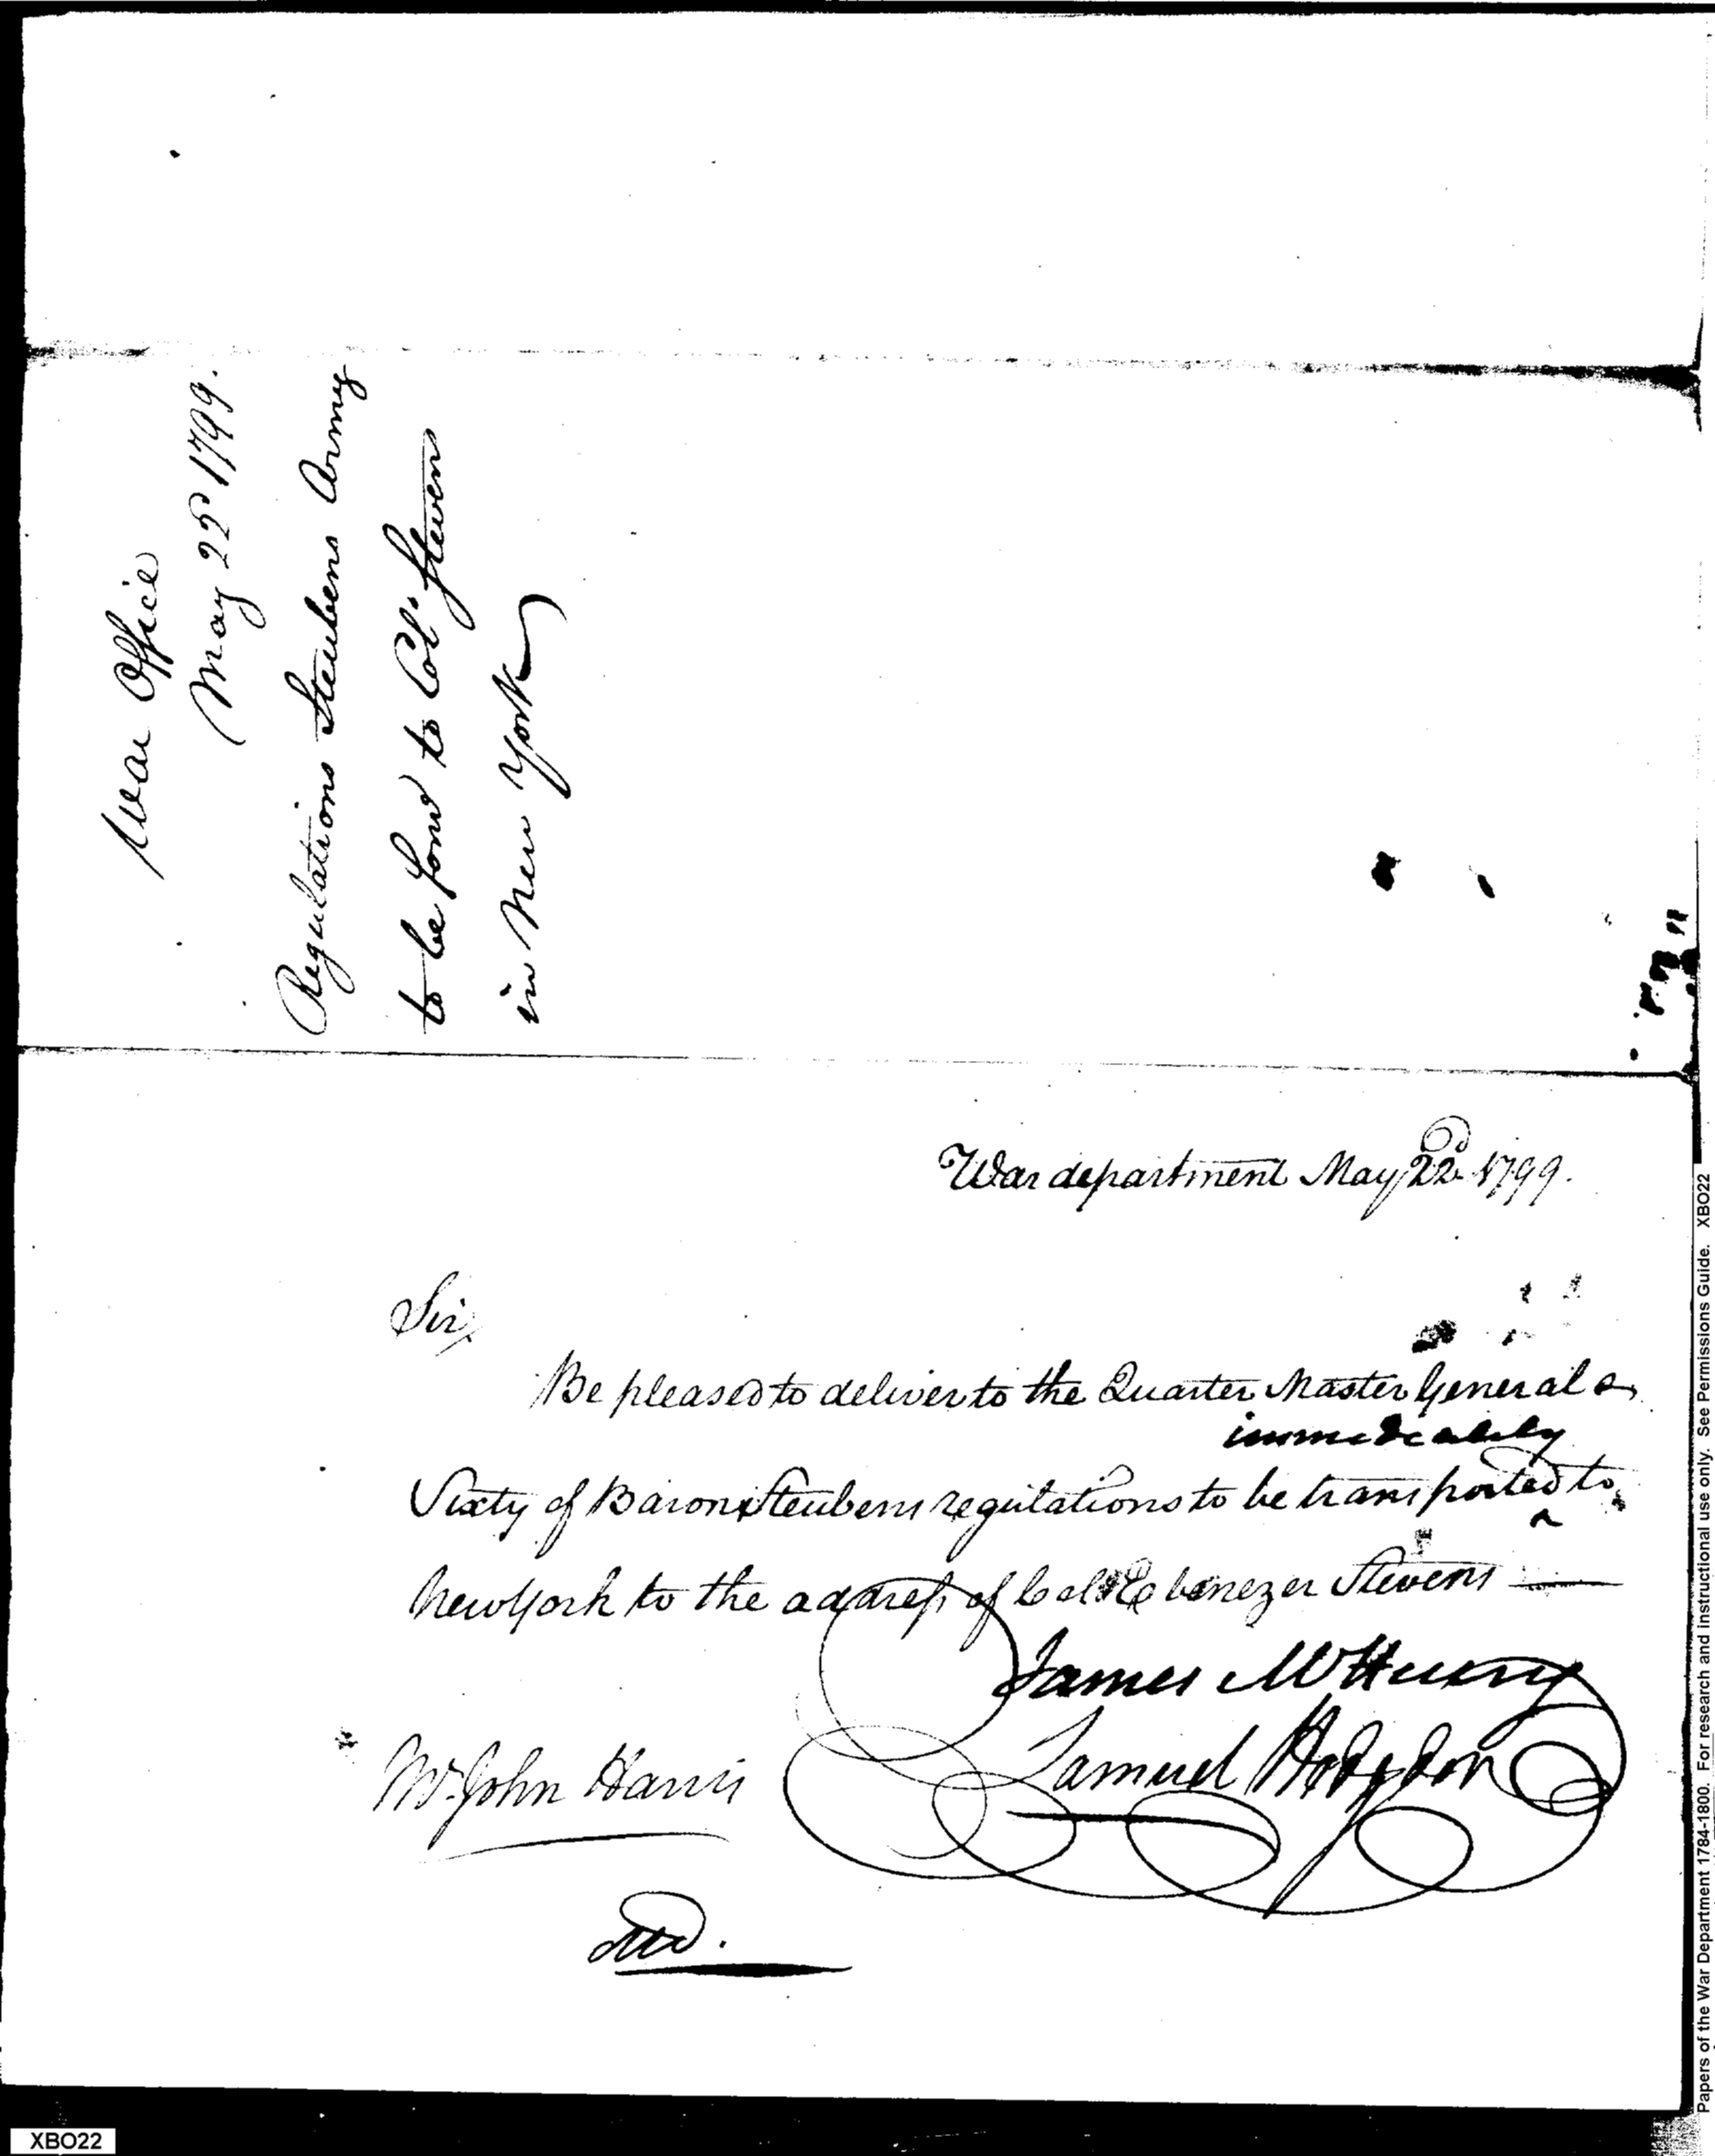 War Office
May 22d 1799.
Regulations Steubens Army
to be forwd to Col. Steven
in New York
War department May 22d 1799.
Sir,
Be pleased to deliver to the Quarter Master General
immediately
Sixty of Baron Steubens regulations to be transported to
New York to the address of Col. Ebenezer Stevens
James McHenry
Samuel Hodgdon
Mr. John Harris
XBO22
Papers of the War Department 1784-1800. For research and instructional use only. See Permissions Guide. XBO22